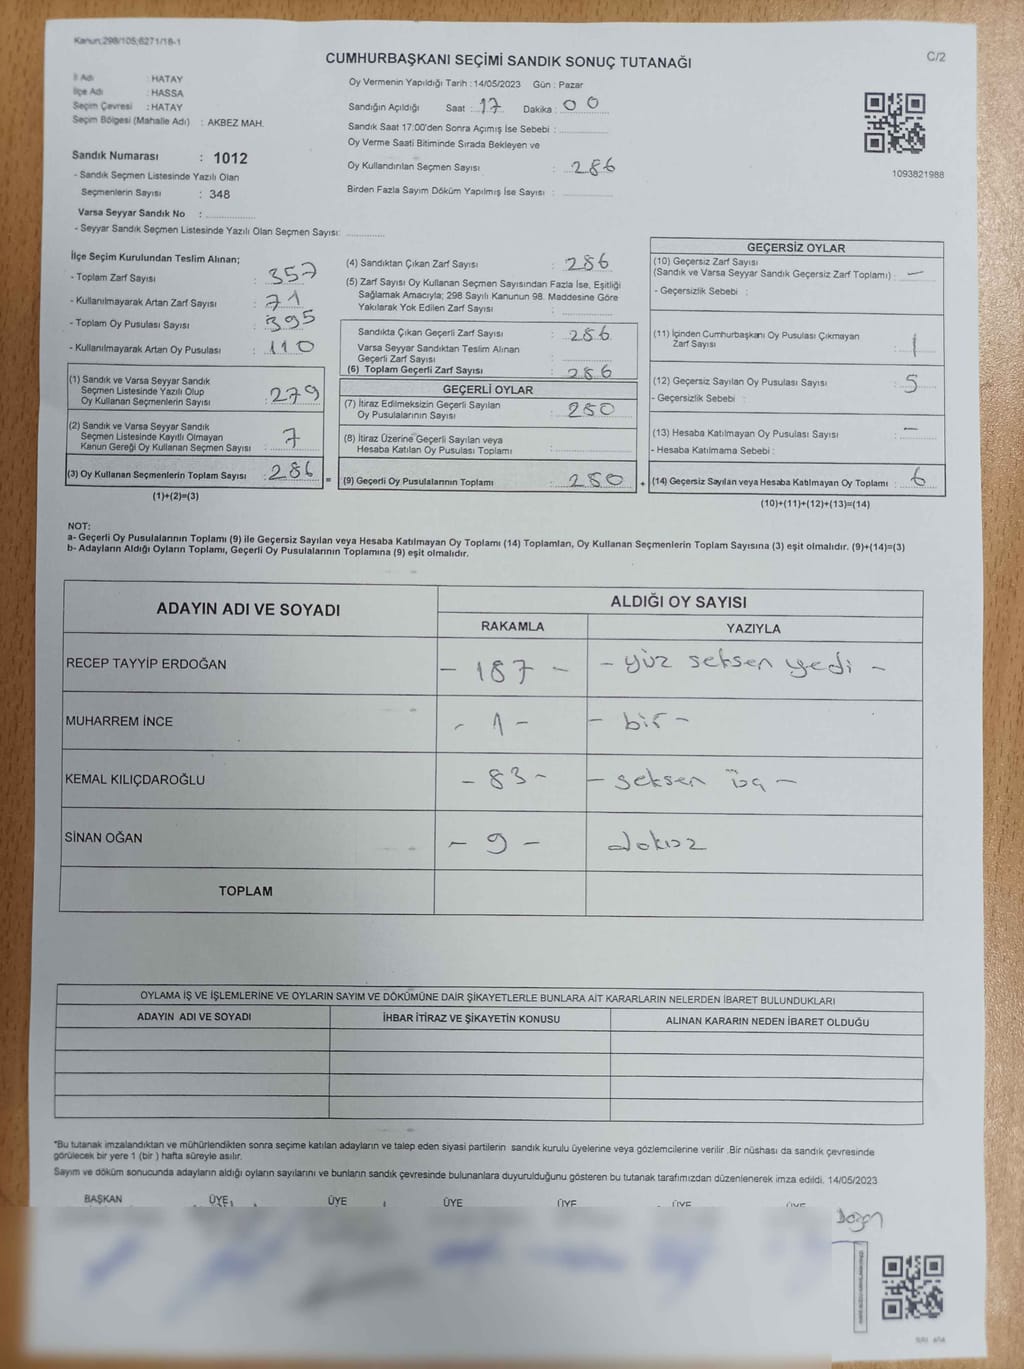 Kanun:298/105;6271/18-1
C/2
CUMHURBAŞKANI SEÇİMİ SANDIK SONUÇ TUTANAĞI
İl Adı : HATAY
İlçe Adı : HASSA
Seçim Çevresi : HATAY
Seçim Bölgesi (Mahalle Adı) : AKBEZ MAH.
Sandık Numarası : 1012
- Sandık Seçmen Listesinde Yazılı Olan
Seçmenlerin Sayısı : 348
Varsa Seyyar Sandık No :
- Seyyar Sandık Seçmen Listesinde Yazılı Olan Seçmen Sayısı:
Oy Vermenin Yapıldığı Tarih : 14/05/2023 Gün : Pazar
Sandığın Açıldığı Saat : 17 Dakika : 00
Sandık Saat 17:00'den Sonra Açımış İse Sebebi :
Oy Verme Saati Bitiminde Sırada Bekleyen ve
Oy Kullandırılan Seçmen Sayısı : 286
Birden Fazla Sayım Döküm Yapılmış İse Sayısı :
1093821988
İlçe Seçim Kurulundan Teslim Alınan;
- Toplam Zarf Sayısı : 357
- Kullanılmayarak Artan Zarf Sayısı : 71
- Toplam Oy Pusulası Sayısı : 395
- Kullanılmayarak Artan Oy Pusulası : 110
(1) Sandık ve Varsa Seyyar Sandık
Seçmen Listesinde Yazılı Olup
Oy Kullanan Seçmenlerin Sayısı : 279
(2) Sandık ve Varsa Seyyar Sandık
Seçmen Listesinde Kayıtlı Olmayan
Kanun Gereği Oy Kullanan Seçmen Sayısı : 7
(3) Oy Kullanan Seçmenlerin Toplam Sayısı : 286
(1)+(2)=(3)
(4) Sandıktan Çıkan Zarf Sayısı : 286
(5) Zarf Sayısı Oy Kullanan Seçmen Sayısından Fazla İse, Eşitliği
Sağlamak Amacıyla; 298 Sayılı Kanunun 98. Maddesine Göre
Yakılarak Yok Edilen Zarf Sayısı :
Sandıkta Çıkan Geçerli Zarf Sayısı : 286
Varsa Seyyar Sandıktan Teslim Alınan
Geçerli Zarf Sayısı :
(6) Toplam Geçerli Zarf Sayısı : 286
GEÇERLİ OYLAR
(7) İtiraz Edilmeksizin Geçerli Sayılan
Oy Pusulalarının Sayısı : 280
(8) İtiraz Üzerine Geçerli Sayılan veya
Hesaba Katılan Oy Pusulası Toplamı :
= (9) Geçerli Oy Pusulalarının Toplamı : 280 +
GEÇERSİZ OYLAR
(10) Geçersiz Zarf Sayısı
(Sandık ve Varsa Seyyar Sandık Geçersiz Zarf Toplamı) : —
- Geçersizlik Sebebi :
(11) İçinden Cumhurbaşkanı Oy Pusulası Çıkmayan
Zarf Sayısı : 1
(12) Geçersiz Sayılan Oy Pusulası Sayısı : 5
- Geçersizlik Sebebi :
(13) Hesaba Katılmayan Oy Pusulası Sayısı : —
- Hesaba Katılmama Sebebi :
(14) Geçersiz Sayılan veya Hesaba Katılmayan Oy Toplamı : 6
(10)+(11)+(12)+(13)=(14)
NOT:
a- Geçerli Oy Pusulalarının Toplamı (9) ile Geçersiz Sayılan veya Hesaba Katılmayan Oy Toplamı (14) Toplamları, Oy Kullanan Seçmenlerin Toplam Sayısına (3) eşit olmalıdır. (9)+(14)=(3)
b- Adayların Aldığı Oyların Toplamı, Geçerli Oy Pusulalarının Toplamına (9) eşit olmalıdır.
ADAYIN ADI VE SOYADI
ALDIĞI OY SAYISI
RAKAMLA YAZIYLA
RECEP TAYYİP ERDOĞAN - 187 - - yüz seksen yedi -
MUHARREM İNCE - 1 - - bir -
KEMAL KILIÇDAROĞLU - 83 - - seksen üç -
SİNAN OĞAN - 9 - dokuz
TOPLAM
OYLAMA İŞ VE İŞLEMLERİNE VE OYLARIN SAYIM VE DÖKÜMÜNE DAİR ŞİKAYETLERLE BUNLARA AİT KARARLARIN NELERDEN İBARET BULUNDUKLARI
ADAYIN ADI VE SOYADI İHBAR İTİRAZ VE ŞİKAYETİN KONUSU ALINAN KARARIN NEDEN İBARET OLDUĞU
*Bu tutanak imzalandıktan ve mühürlendikten sonra seçime katılan adayların ve talep eden siyasi partilerin sandık kurulu üyelerine veya gözlemcilerine verilir .Bir nüshası da sandık çevresinde
görülecek bir yere 1 (bir ) hafta süreyle asılır.
Sayım ve döküm sonucunda adayların aldığı oyların sayılarını ve bunların sandık çevresinde bulunanlara duyurulduğunu gösteren bu tutanak tarafımızdan düzenlenerek imza edildi. 14/05/2023
BAŞKAN ÜYE ÜYE ÜYE ÜYE ÜYE ÜYE